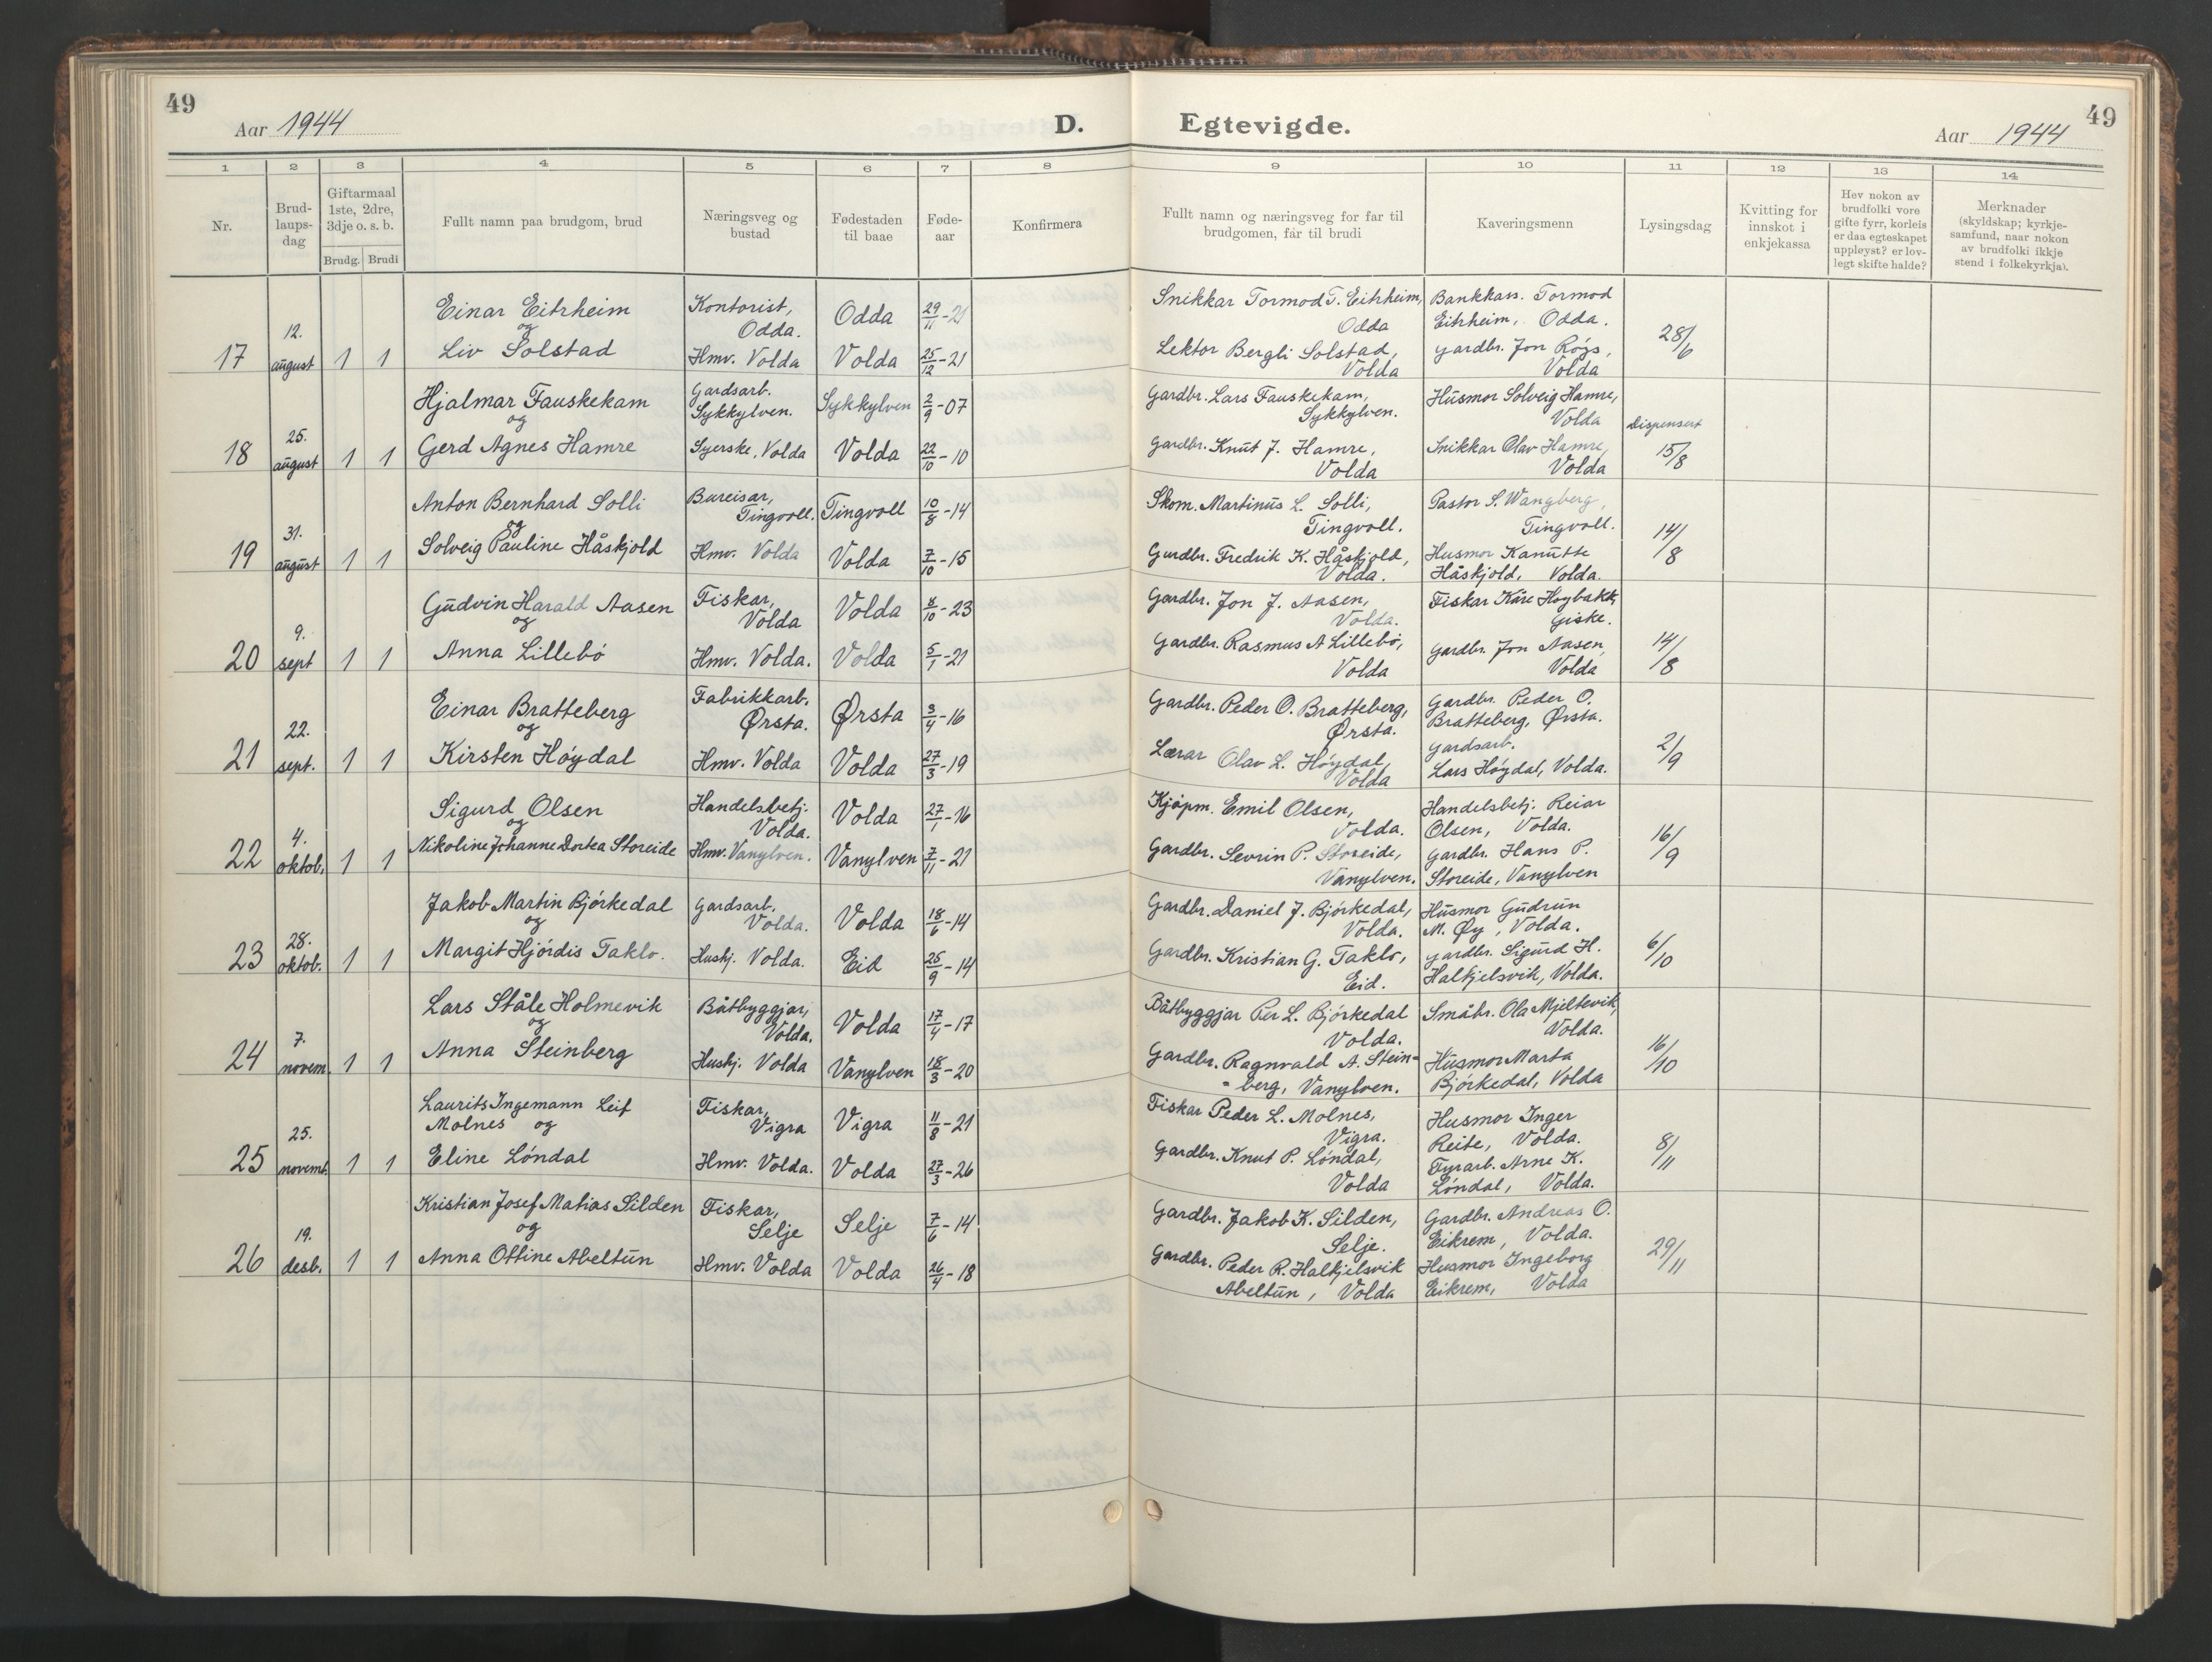 49
Aar 1944
D.
1 2 3 4 5 6 7 8
Nr.
Brud-
laups-
dag
Giftarmaal
1ste, 2dre,
3dje o. s. b.
Brudg. Brudi
Fullt namn paa brudgom, brud
Næringsveg og
bustad
Fødestaden
til baae
Føde-
aar
Konfirmera
17
12.
august
1 1
Einar Eitrheim
og
Liv Solstad
Kontorist,
Odda.
Hmv. Volda
Odda
Volda
29/11-21
25/12-21
18
25.
august
1 1
Hjalmar Fauskekam
og
Gerd Agnes Hamre
Gardsarb.
Sykkylven.
Syerske, Volda
Sykkylven
Volda
2/9-07
22/10-10
19
31.
august
1 1
Anton Bernhard Solli
og
Solveig Pauline Håskjold
Bureisar,
Tingvoll.
Hmv. Volda
Tingvoll
Volda
10/8-14
7/10-15
20
9.
sept
1 1
Gudvin Harald Aasen
og
Anna Lillebø
Fiskar,
Volda
Hmv. Volda.
Volda
Volda
/10-23
5/1-21
21
22.
sept.
1 1
Einar Bratteberg
og
Kirsten Høydal
Fabrikkarb.
Ørsta.
Hmv. Volda
Ørsta
Volda
3/4-16
27/3-19
22
4.
oktob.
1 1
Sigurd Olsen
og
Nikoline Johanne Dortea Storeide
Handelsbetj.
Volda.
Hmv. Vanylven.
Volda
Vanylven
27/1-16
7/11-21
23
28.
oktob.
1 1
Jakob Martin Bjørkedal
og
Margit Hjørdis Taklo.
Gardsarb.
Volda.
Hushj. Volda.
Volda
Eid
18/6-14
25/9-14
24
7.
novem.
1 1
Lars Ståle Holmevik
og
Anna Steinberg
Båtbyggjar,
Volda.
Hushj. Volda
Volda
Vanylven
17/4-17
18/3-20
25
25.
novemb.
1 1
Laurits Ingemann Leif
Molnes og
Eline Løndal
Fiskar,
Vigra
Hmv. Volda.
Vigra
Volda
11/8-21
27/3-26
26
19.
desb.
1 1
Kristian Josef Matias Silden
og
Anna Otine Abeltun
Fiskar,
Selje
Hmv. Volda
Selje
Volda
7/6-14
26/4-18
Egtevigde.
Aar 1944
49
9 10 11 12 13 14
Fullt namn og næringsveg for far til
brudgomen, far til brudi
Kaveringsmenn
Lysingsdag
Kvitting for
innskot i
enkjekassa
Hev nokon av
brudfolki vore
gifte fyrr, korleis
er daa egteskapet
uppløyst? er lov-
legt skifte halde?
Merknader
(skyldskap; kyrkje-
samfund, naar nokon
av brudfolki ikkje
stend i folkekyrkja).
Snikkar Tormod T. Eitrheim,
Odda
Lektor Bergli Solstad,
Volda
Bankkass. Tormod
Eitrheim, Odda.
Gardbr. Jon Røys,
Volda
28/6
Gardbr. Lars Fauskekam,
Sykkylven.
Gardbr. Knut J. Hamre,
Volda
Husmor Solveig Hamre,
Volda
Snikkar Olav Hamre,
Volda
Dispensert
15/8
Skom. Martinus L. Solli,
Tingvoll.
Gardbr. Fredrik K. Håskjold,
Volda.
Pastor S. Wangberg,
Tingvoll.
Husmor Kanutte
Håskjold, Volda.
14/8
Gardbr. Jon J. Aasen,
Volda.
Gardbr. Rasmus A Lillebø,
Volda
Fiskar Kåre Høybakk,
Giske.
Gardbr. Jon Aasen,
Volda
14/8
Gardbr. Peder O. Bratteberg,
Ørsta.
Lærar Olav L. Høydal,
Volda
Gardbr. Peder O.
Bratteberg, Ørsta.
Gardsarb.
Lars Høydal, Volda.
2/9
Kjøpm. Emil Olsen,
Volda.
Gardbr. Sevrin P. Storeide,
Vanylven.
Handelsbetj. Reiar
Olsen, Volda.
Gardbr. Hans P.
Storeide, Vanylven
16/9
Gardbr. Daniel J. Bjørkedal,
Volda.
Gardbr. Kristian G. Taklo,
Eid.
Husmor Gudrun
M. Øy, Volda.
Gardbr. Sigurd H.
Halkjelsvik, Volda.
6/10
Båtbyggjar Per L. Bjørkedal
Volda.
Gardbr. Ragnvald A. Stein-
-berg, Vanylven.
Småbr. Ola Mjeltevik,
Volda.
Husmor Marta
Bjørkedal, Volda
16/10
Fiskar Peder L. Molnes,
Vigra.
Gardbr. Knut P. Løndal,
Volda
Husmor Inger
Reite, Volda.
Fyrarb. Arne K.
Løndal, Volda.
8/11
Gardbr. Jakob K. Silden,
Selje.
Gardbr. Peder R. Halkjelsvik
Abeltun, Volda
Gardbr. Andreas O.
Eikrem, Volda.
Husmor Ingeborg
Eikrem, Volda
29/11